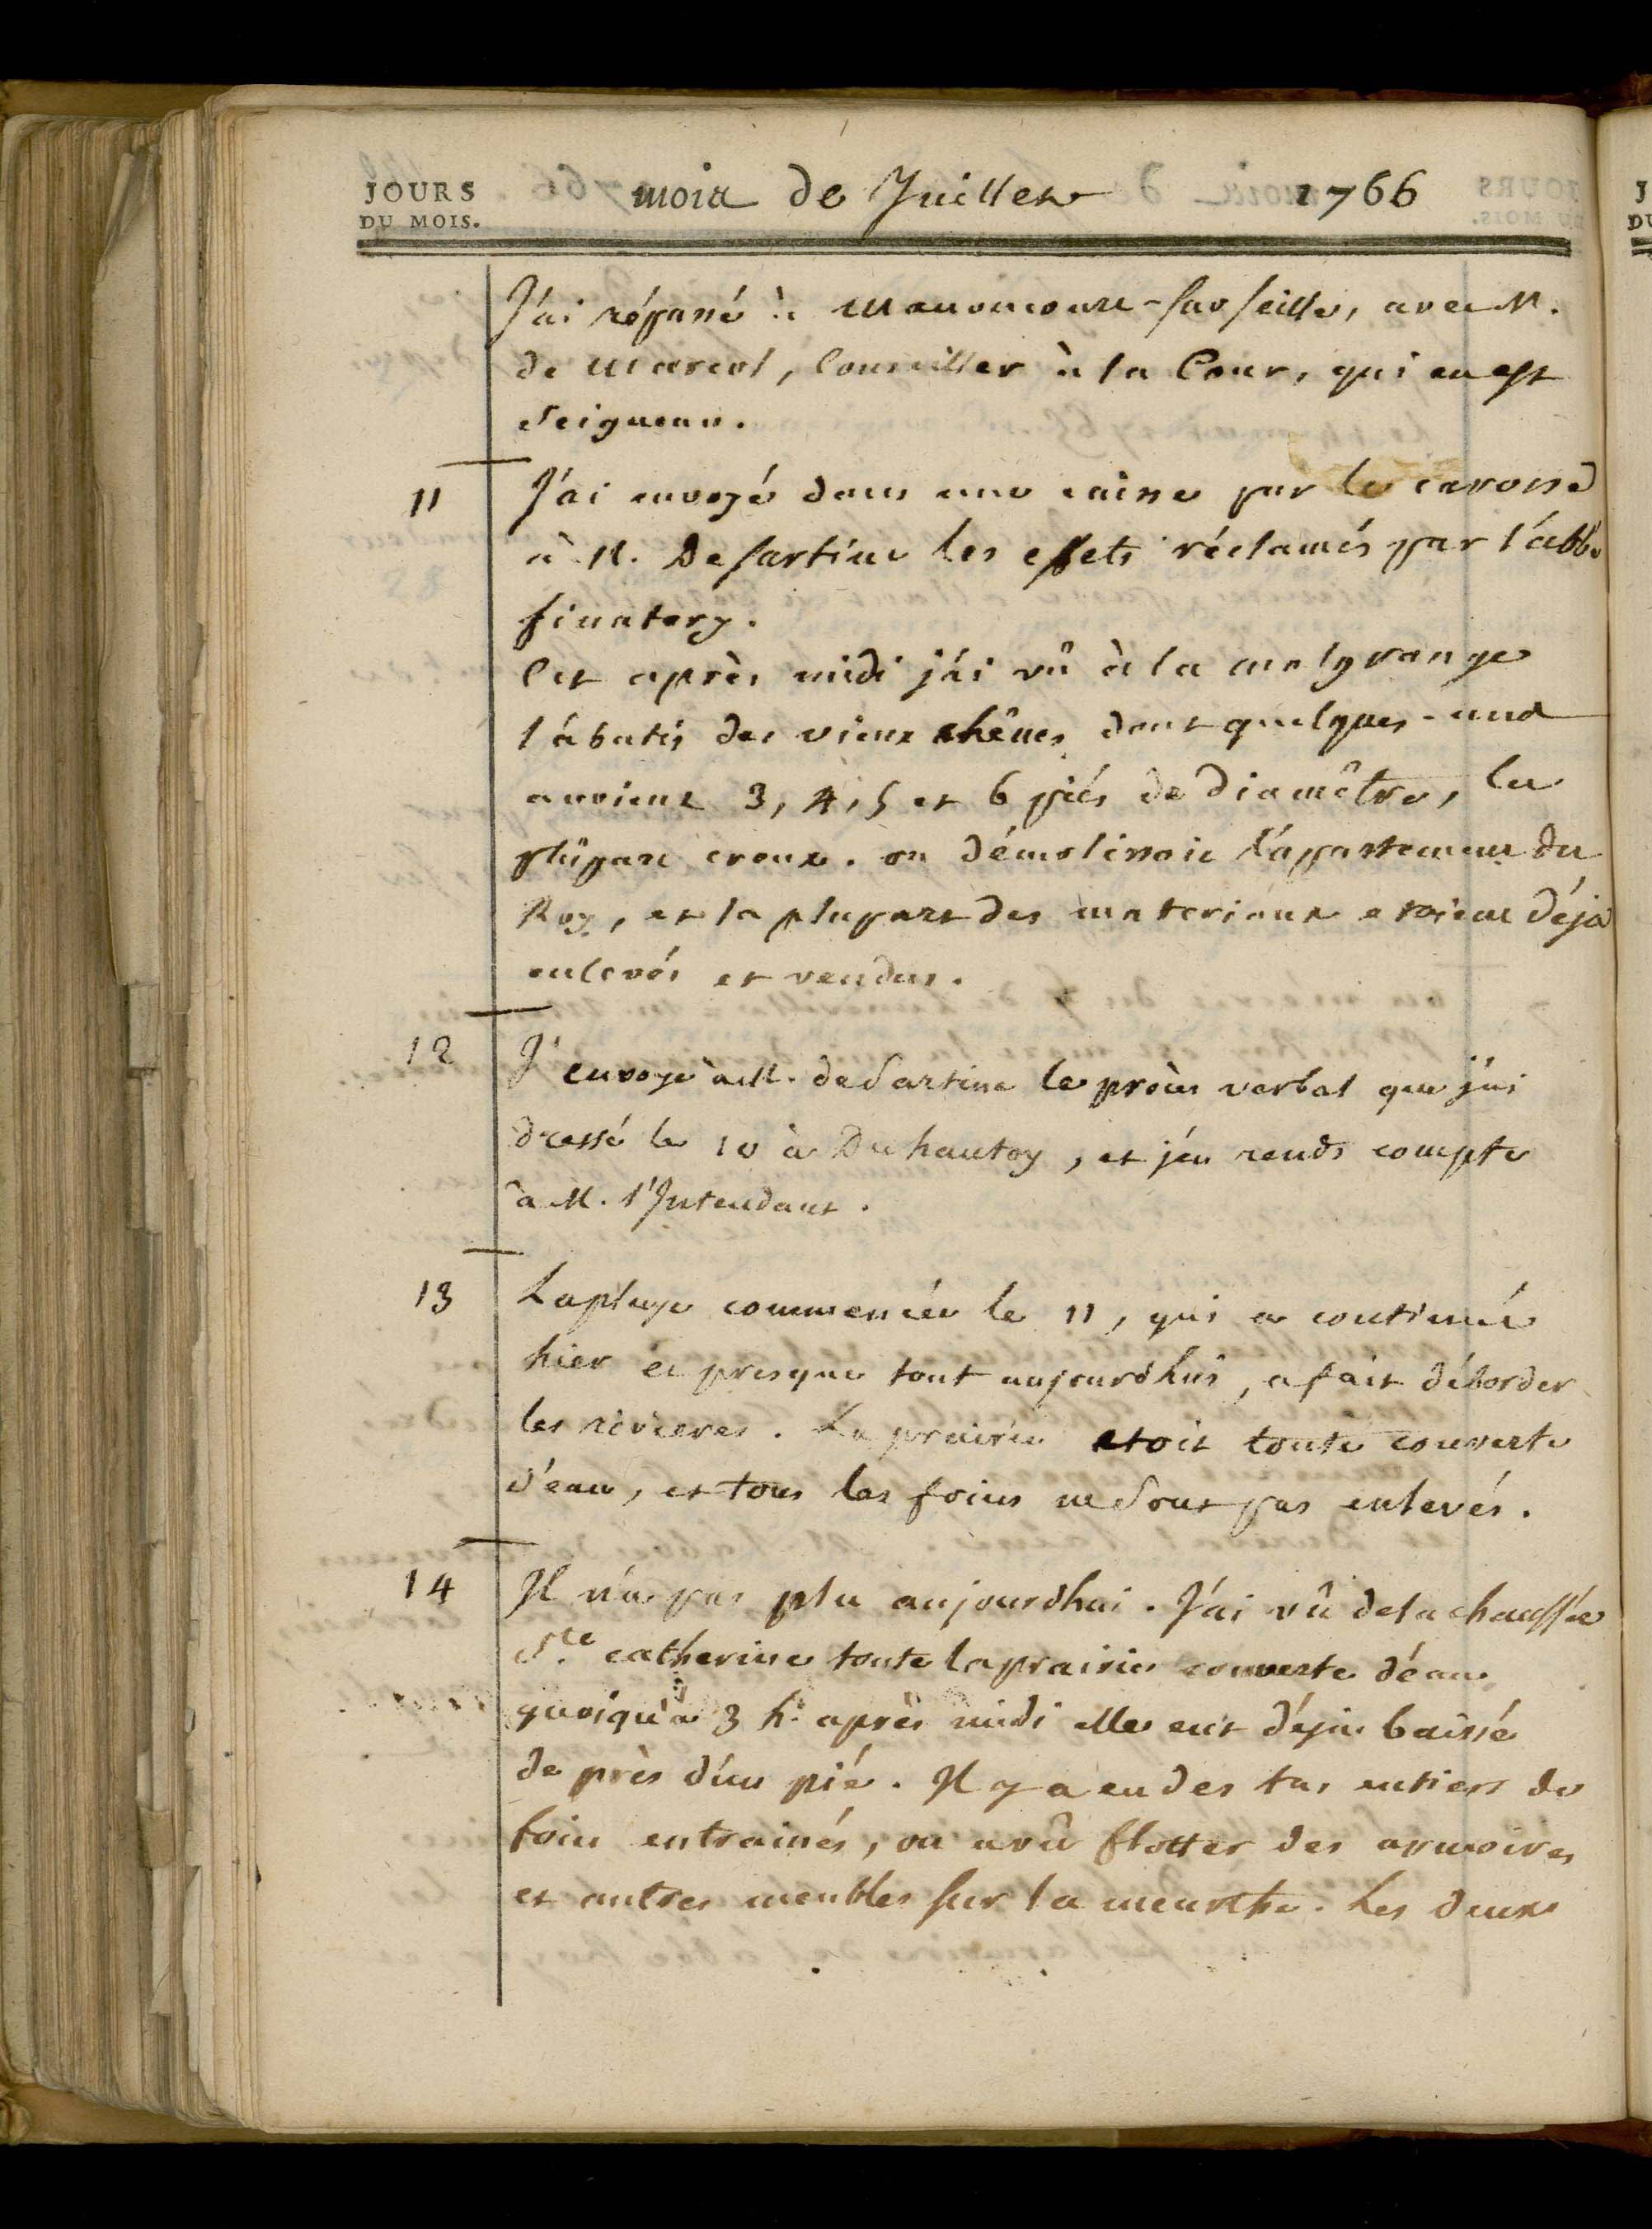 JOURS
DU MOIS.
mois de Juillet 1766
J'ai répassé à Manoncourt-sur seille, avec M.
de Marcol, Conseiller à la Cour, qui en est
seigneur.
11 J'ai envoyé dans une caisse par le carosse
à M. De sartine les effets réclamés par l'abbé
finatery.
Cet après midi j'ai vû à la malgrange
l'abatis des vieux chênes dont quelques-uns
avoient 3, 4, 5 et 6 piés de diamêtre, la
plûpart creux. on démolissoit l'appartement du
Roy, et la plupart des materiaux etoient déja
enlevés et vendus.
12 J'envoye à M. de Sartine le procès verbal que j'ai
dressé le 10 à Du hautoy, et j'en rends compte
à M. l'Intendant.
13 La pluye commencée le 11, qui a continué
hier et presque tout aujourdhui, a fait déborder
les rivieres. La prairie etoit toute couverte
d'eau, et tous les foins ne sont pas enlevés.
14 Il n'a pas plu aujourdhui. J'ai vû de la chaussée
Ste catherine toute la prairie couverte d'eau
quoiqu'à 3 h. après midi elle eut déja baissé
de près d'un pié. Il y a eu des tas entiers de
foin entrainés, on a vû flotter des armoires
et autres meubles sur la meurthe. Les deux